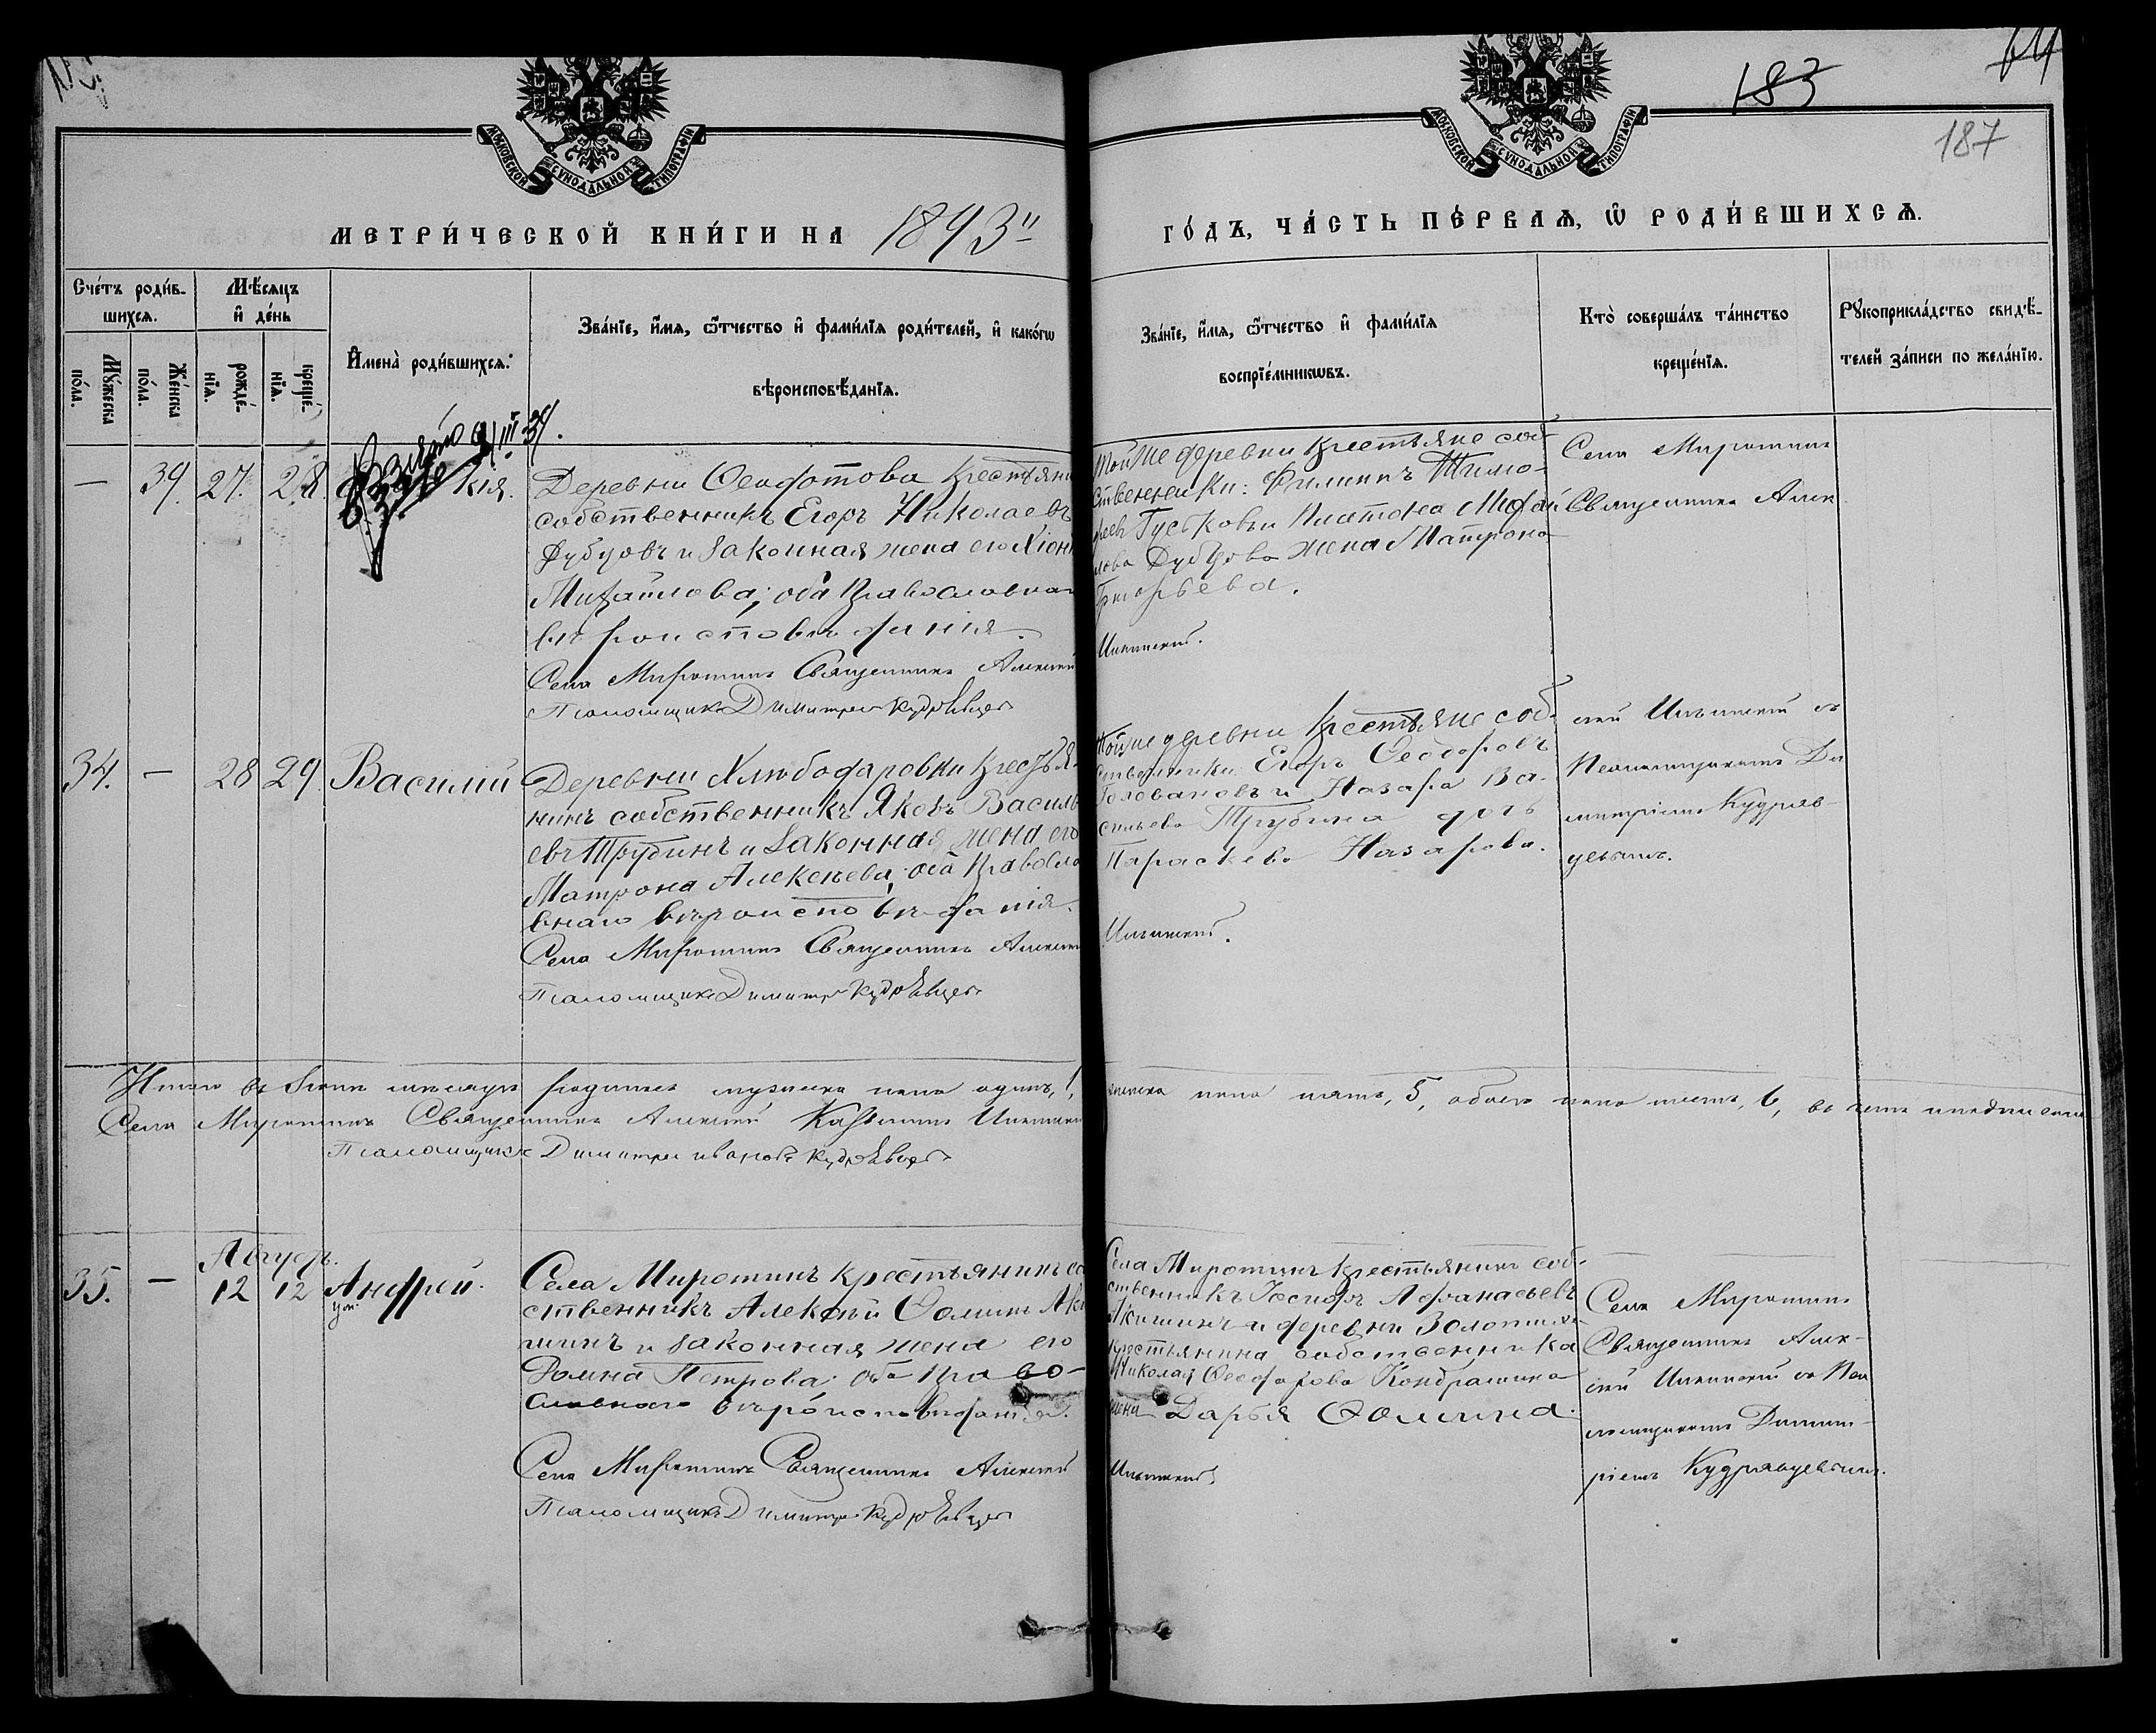 183
187
МОСКОВСКОЙ СУНОДАЛЬНОЙ ТИПОГРАФІИ
МОСКОВСКОЙ СУНОДАЛЬНОЙ ТИПОГРАФІИ
МЕТРИ́ЧЕСКОЙ КНИ́ГИ НА 1893
ГО́ДЪ, ЧА́СТЬ ПЕ́РВАѦ, Ѡ РОДИ́ВШИХСѦ.
Сче́тъ роди́в-
шихсѧ.
Мꙋ́жеска по́ла.
Же́нска по́ла.
Мѣ́сѧцъ
и҆ де́нь
рожде́-
нїѧ.
креще́-
нїѧ.
И҆мена̀ роди́вшихсѧ.
Зва́нїе, и҆́мѧ, ѻ҆́тчество и҆ фами́лїѧ роди́телей, и҆ како́гѡ
вѣроисповѣ́данїѧ.
Зва́нїе, и҆́мѧ, ѻ҆́тчество и҆ фами́лїѧ
воспрїе́мникѡвъ.
Кто̀ соверша́лъ та́инство
креще́нїѧ.
Рꙋкоприкла́дство свидѣ́-
телей за́писи по жела́нїю.
— 39. 27. 28. кія.
Деревни Ѳеофотова Крестьяни
собственникъ Егоръ Николаевъ
Дубцовъ и законная жена его Хіон
Михайлова; оба Православнаг
вѣроисповѣданія.
Села Миротинъ Священникъ Алексей
Псаломщикъ Димитрій Кудрявцевъ
Тойже деревни Крестьяне соб-
ственники: Филиппъ Тимо-
феевъ Гуськовъ и Платона Михай
лова Дубцова жена Матрона
Григорьева.
Ильинскій.
Села Миротинъ
Священникъ Алек
34. — 28 29 Василій
Деревни Хлѣбодаровки Крестья-
нинъ собственникъ Яковъ Василь
евъ Трубинъ и законная жена его
Матрона Алексѣева; оба Правосла
внаго вѣроисповѣданія.
Села Миротинъ Священникъ Алексей
Псаломщикъ Димитрій Кудрявцевъ
Тойже деревни Крестьяне соб-
ственники: Егоръ Ѳеодоровъ
Головановъ и Назара Ва-
сильева Трубина дочь
Параскева Назарова.
Ильинскій.
сей Ильинскій съ
Псаломщикомъ Ди
митріемъ Кудряв-
цевымъ.
Итого въ Іюлѣ мѣсяцѣ родилось мужеска пола одинъ, 1, женска пола пять, 5, обоего пола шесть, 6, въ чемъ и подписались
Села Миротинъ Священникъ Алексей Ильинскій
Псаломщикъ Димитрій Ивановъ Кудрявцевъ
Августъ.
35. — 12 12 Андрей.
ум.
Села Миротинъ крестьянинъ со
ственникъ Алексѣй Ѳоминъ Аки
шинъ и законная жена его
Домна Петрова; оба Право-
славнаго вѣроисповѣданія.
Села Миротинъ Священникъ Алексей
Псаломщикъ Димитрій Кудрявцевъ
Села Миротинъ Крестьянинъ соб-
ственникъ Іосифъ Афанасьевъ
Акишинъ и деревни
крестьянина собственника
Николая Ѳеодорова Кондрашина
жена Дарья Ѳомина.
Ильинскій.
Села Миротинъ
Священникъ Алек-
сей Ильинскій съ Пса
ломщикомъ Димит-
ріемъ Кудрявцевымъ.